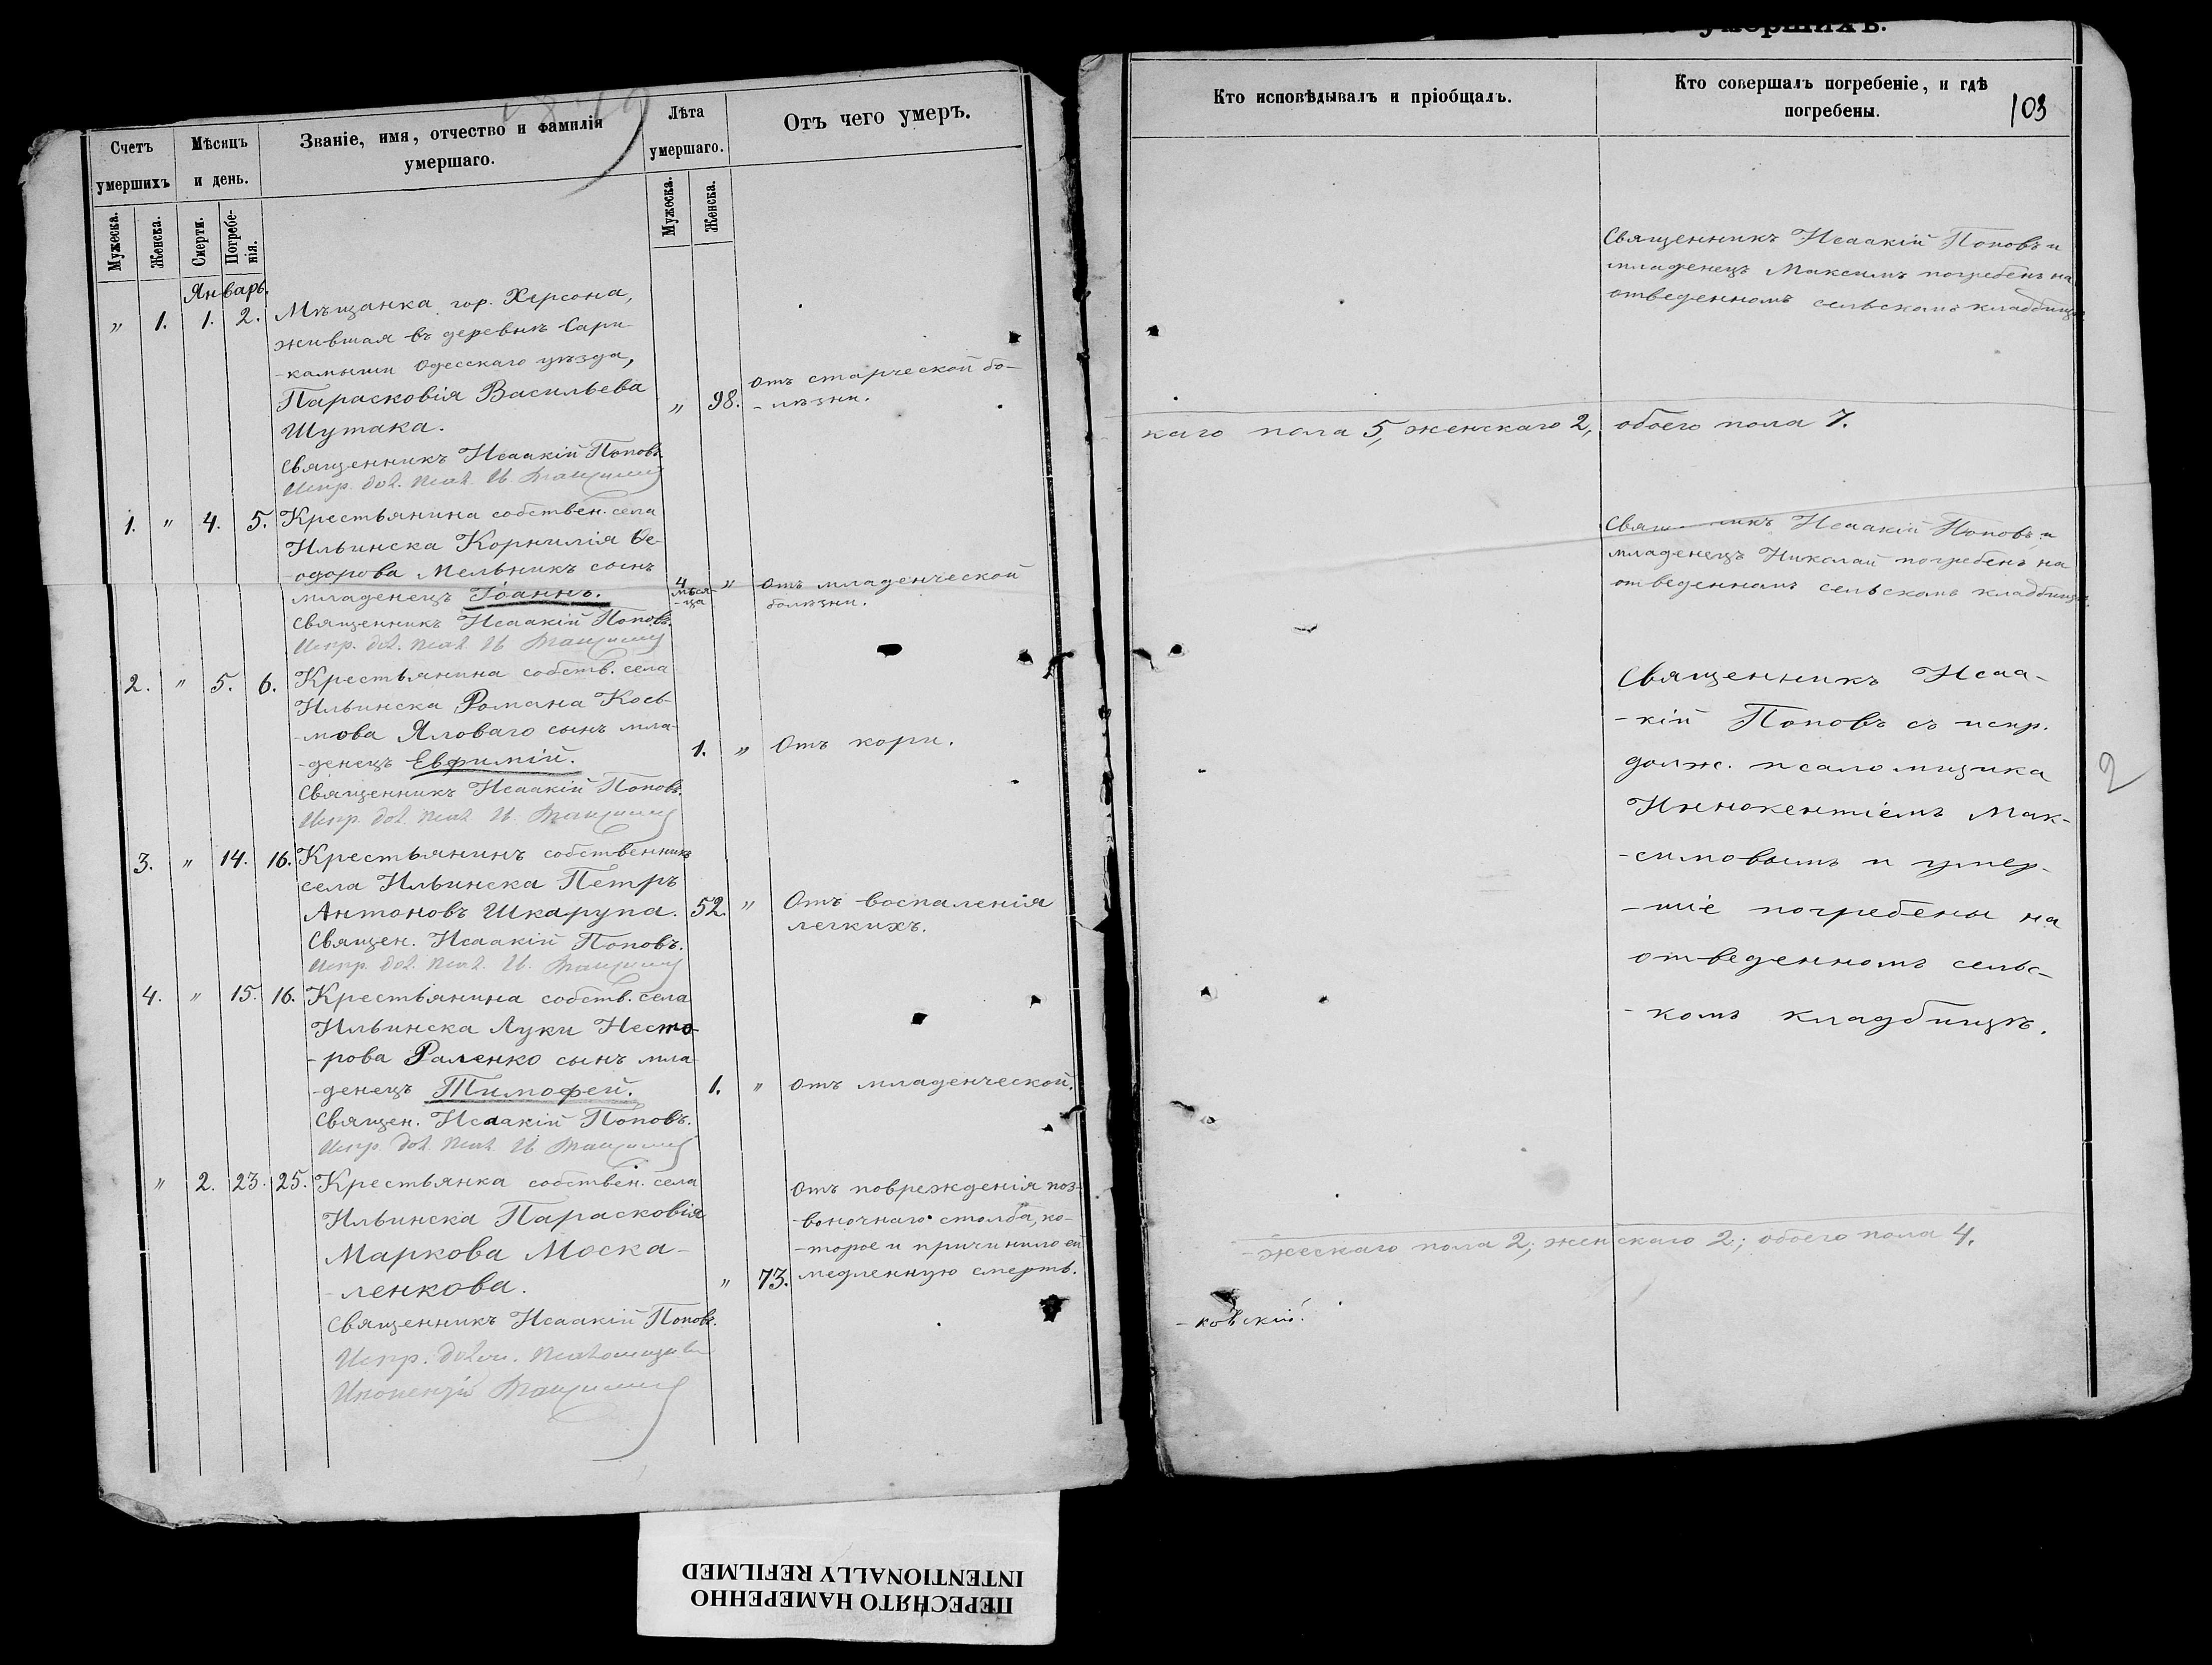 Счетъ
умершихъ
Мѣсяцъ
и день.
Званіе, имя, отчество и фамилія
умершаго.
Лѣта
умершаго.
Отъ чего умеръ.
Мужеска.
Женска.
Смерти.
Погребе-
нія.
Мужеска.
Женска.
Январь.
" 1. 1. 2. Мѣщанка гор. Херсона,
жившая въ деревнѣ Сари-
-камыши Одесскаго уѣзда,
Парасковія Васильева
Шутака. " 98. Отъ старческой бо-
-лѣзни.
Священникъ Исаакій Поповъ
Испр. дол. псал. И.
1. " 4. 5. Крестьянина собствен. села
Ильинска Корнилія Ѳе-
-одорова Мельникъ сынъ
младенецъ Іоаннъ. 4 мѣся-
-ца " Отъ младенческой
болѣзни.
Священникъ Исаакій Поповъ.
Испр. дол. псал. И
2. " 5. 6. Крестьянина собств. села
Ильинска Романа Кось-
-мова Яловаго сынъ мла-
-денецъ Евфимій. 1. " Отъ кори.
Священникъ Исаакій Поповъ.
Испр. дол. псал. И.
3. " 14. 16. Крестьянинъ собственникъ
села Ильинска Петръ
Антоновъ Шкарупа. 52. " Отъ воспаленія
легкихъ.
Священ. Исаакій Поповъ.
Испр. дол. псал. И.
4. " 15. 16. Крестьянина собств. села
Ильинска Луки Несто-
-рова Раленко сынъ мла-
-денецъ Тимофей. 1. " Отъ младенческой.
Священ. Исаакій Поповъ.
Испр. дол. псал. И
" 2. 23. 25. Крестьянка собствен. села
Ильинска Парасковія
Маркова Моска-
-ленкова. " 73.
Отъ поврежденія поз-
-воночнаго столба, ко-
-торое и причинило ей
медленную смерть.
Священникъ Исаакій Поповъ.
Испр. долж. псаломщика
умершихъ.
Кто исповѣдывалъ и пріобщалъ.
Кто совершалъ погребеніе, и гдѣ
погребены.
103
Священникъ Исаакій Поповъ и
младенецъ Максимъ погребенъ на
отведенномъ сельскомъ кладбищѣ
каго пола 5, женскаго 2, обоего пола 7.
Исаакій Поповъ и
младенецъ Николай погребенъ на
отведенномъ сельскомъ кладбищѣ.
Священникъ Исаа-
-кій Поповъ съ испр.
долж. псаломщика
Иннокентіемъ Мак-
-симовымъ и умер-
-шіе погребены на
отведенномъ сельс-
-комъ кладбищѣ.
2
-жескаго пола 2; женскаго 2; обоего пола 4.
-ковскій.
ПЕРЕСНЯТО НАМЕРЕННО
INTENTIONALLY REFILMED